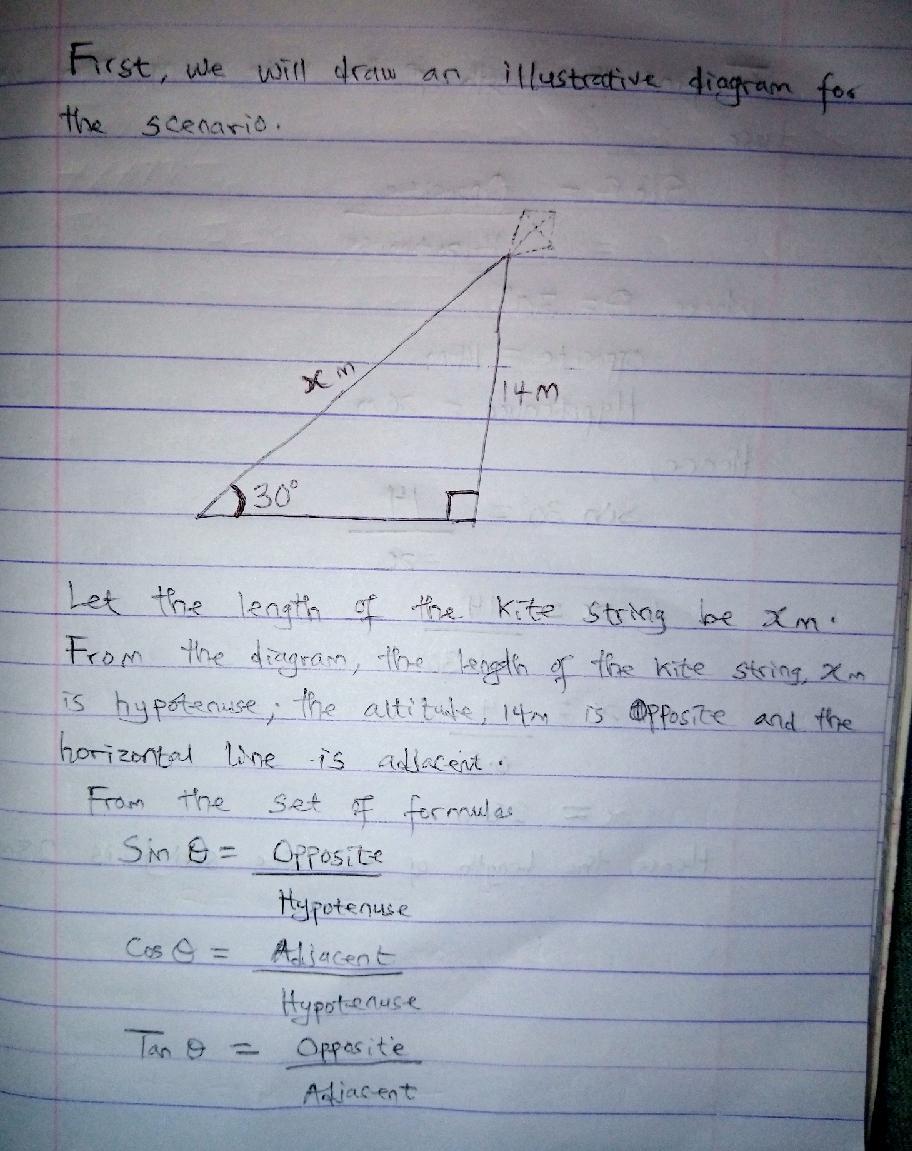 First, we will draw an illustrative diagram for
the scenario.
x m
14m
30°
Let the length of the kite string be x m.
From the diagram, the length of the kite string, x m
is hypotenuse, the altitude, 14m is opposite and the
horizontal line is adjacent.
From the set of formulas
Sin θ = Opposite
Hypotenuse
Cos θ = Adjacent
Hypotenuse
Tan θ = Opposite
Adjacent